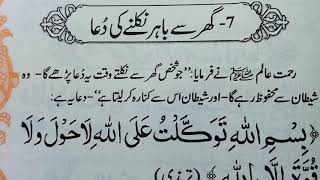 7- گھر سے باہر نکلنے کی دُعا
رحمت عالم ﷺ نے فرمایا: ”جو شخص گھر سے نکلتے وقت یہ دُعا پڑھے گا - وہ
شیطان سے محفوظ رہے گا - اور شیطان اس سے کنارہ کر لیتا ہے“ - دعا یہ ہے:
﴿بِسْمِ اللّٰهِ تَوَكَّلْتُ عَلَى اللّٰهِ لَا حَوْلَ وَلَا
قُوَّةَ اِلَّا بِاللّٰهِ﴾ (ترمذی)